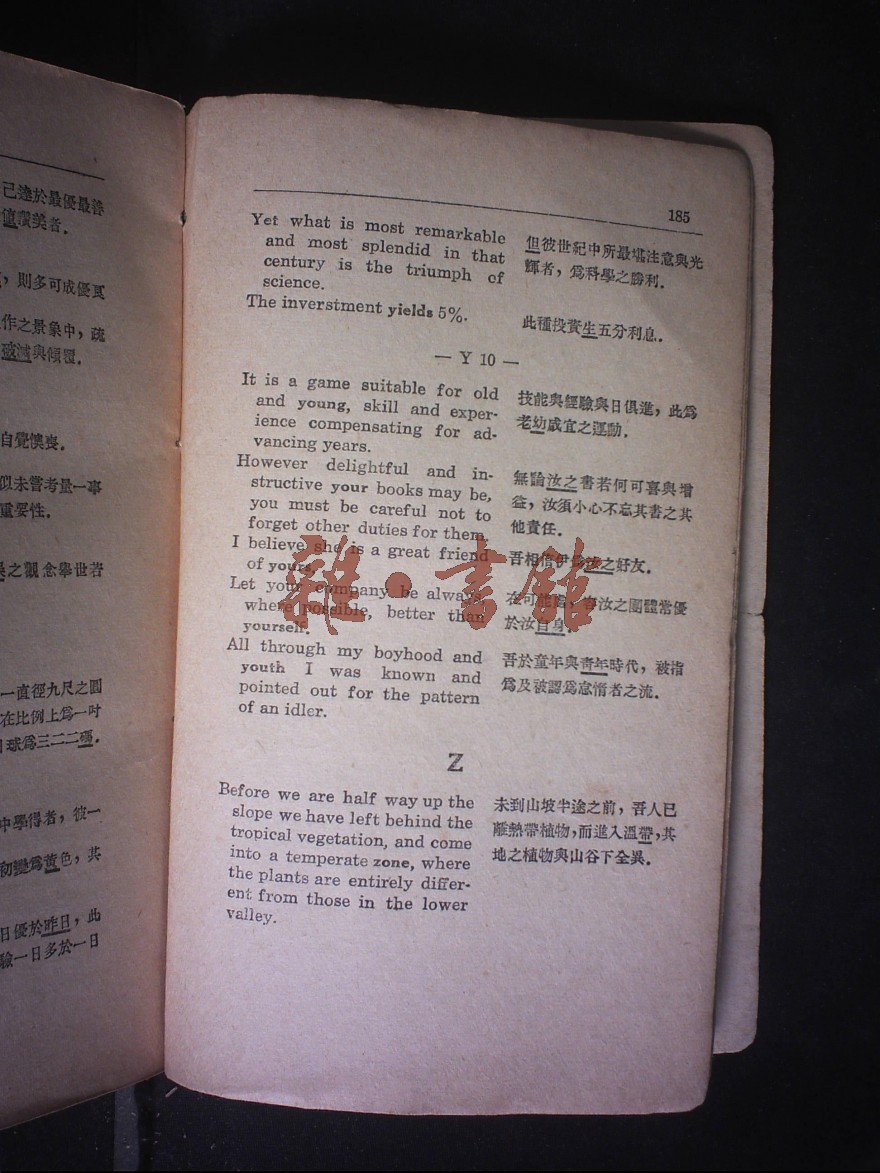 已達於最優最善
值讚美者．
，則多可成優良
作之景象中，疏
破滅與傾覆．
自覺懊喪．
似未嘗考量一事
重要性．
之觀念舉世若
一直徑九尺之圓
在比例上爲一吋
球爲三二二碼．
中學得者，彼一
初變爲黃色，其
日優於昨日，此
驗一日多於一日
185
Yet what is most remarkable
and most splendid in that
century is the triumph of
science.
但彼世紀中所最堪注意與光
輝者，爲科學之勝利．
The inverstment yields 5%.
此種投資生五分利息．
— Y 10 —
It is a game suitable for old
and young, skill and exper-
ience compensating for ad-
vancing years.
技能與經驗與日俱進，此爲
老幼咸宜之運動．
However delightful and in-
structive your books may be,
you must be careful not to
forget other duties for them.
無論汝之書若何可喜與增
益，汝須小心不忘其書之其
他責任．
I believe she is a great friend
of yours.
吾相信伊爲汝之好友．
Let your company be always,
where possible, better than
yourself.
在可能時，汝之團體常優
於汝自身．
All through my boyhood and
youth I was known and
pointed out for the pattern
of an idler.
吾於童年與青年時代，被指
爲及被認爲怠惰者之流．
Z
Before we are half way up the
slope we have left behind the
tropical vegetation, and come
into a temperate zone, where
the plants are entirely differ-
ent from those in the lower
valley.
未到山坡半途之前，吾人已
離熱帶植物，而進入溫帶，其
地之植物與山谷下全異．
雜·書館